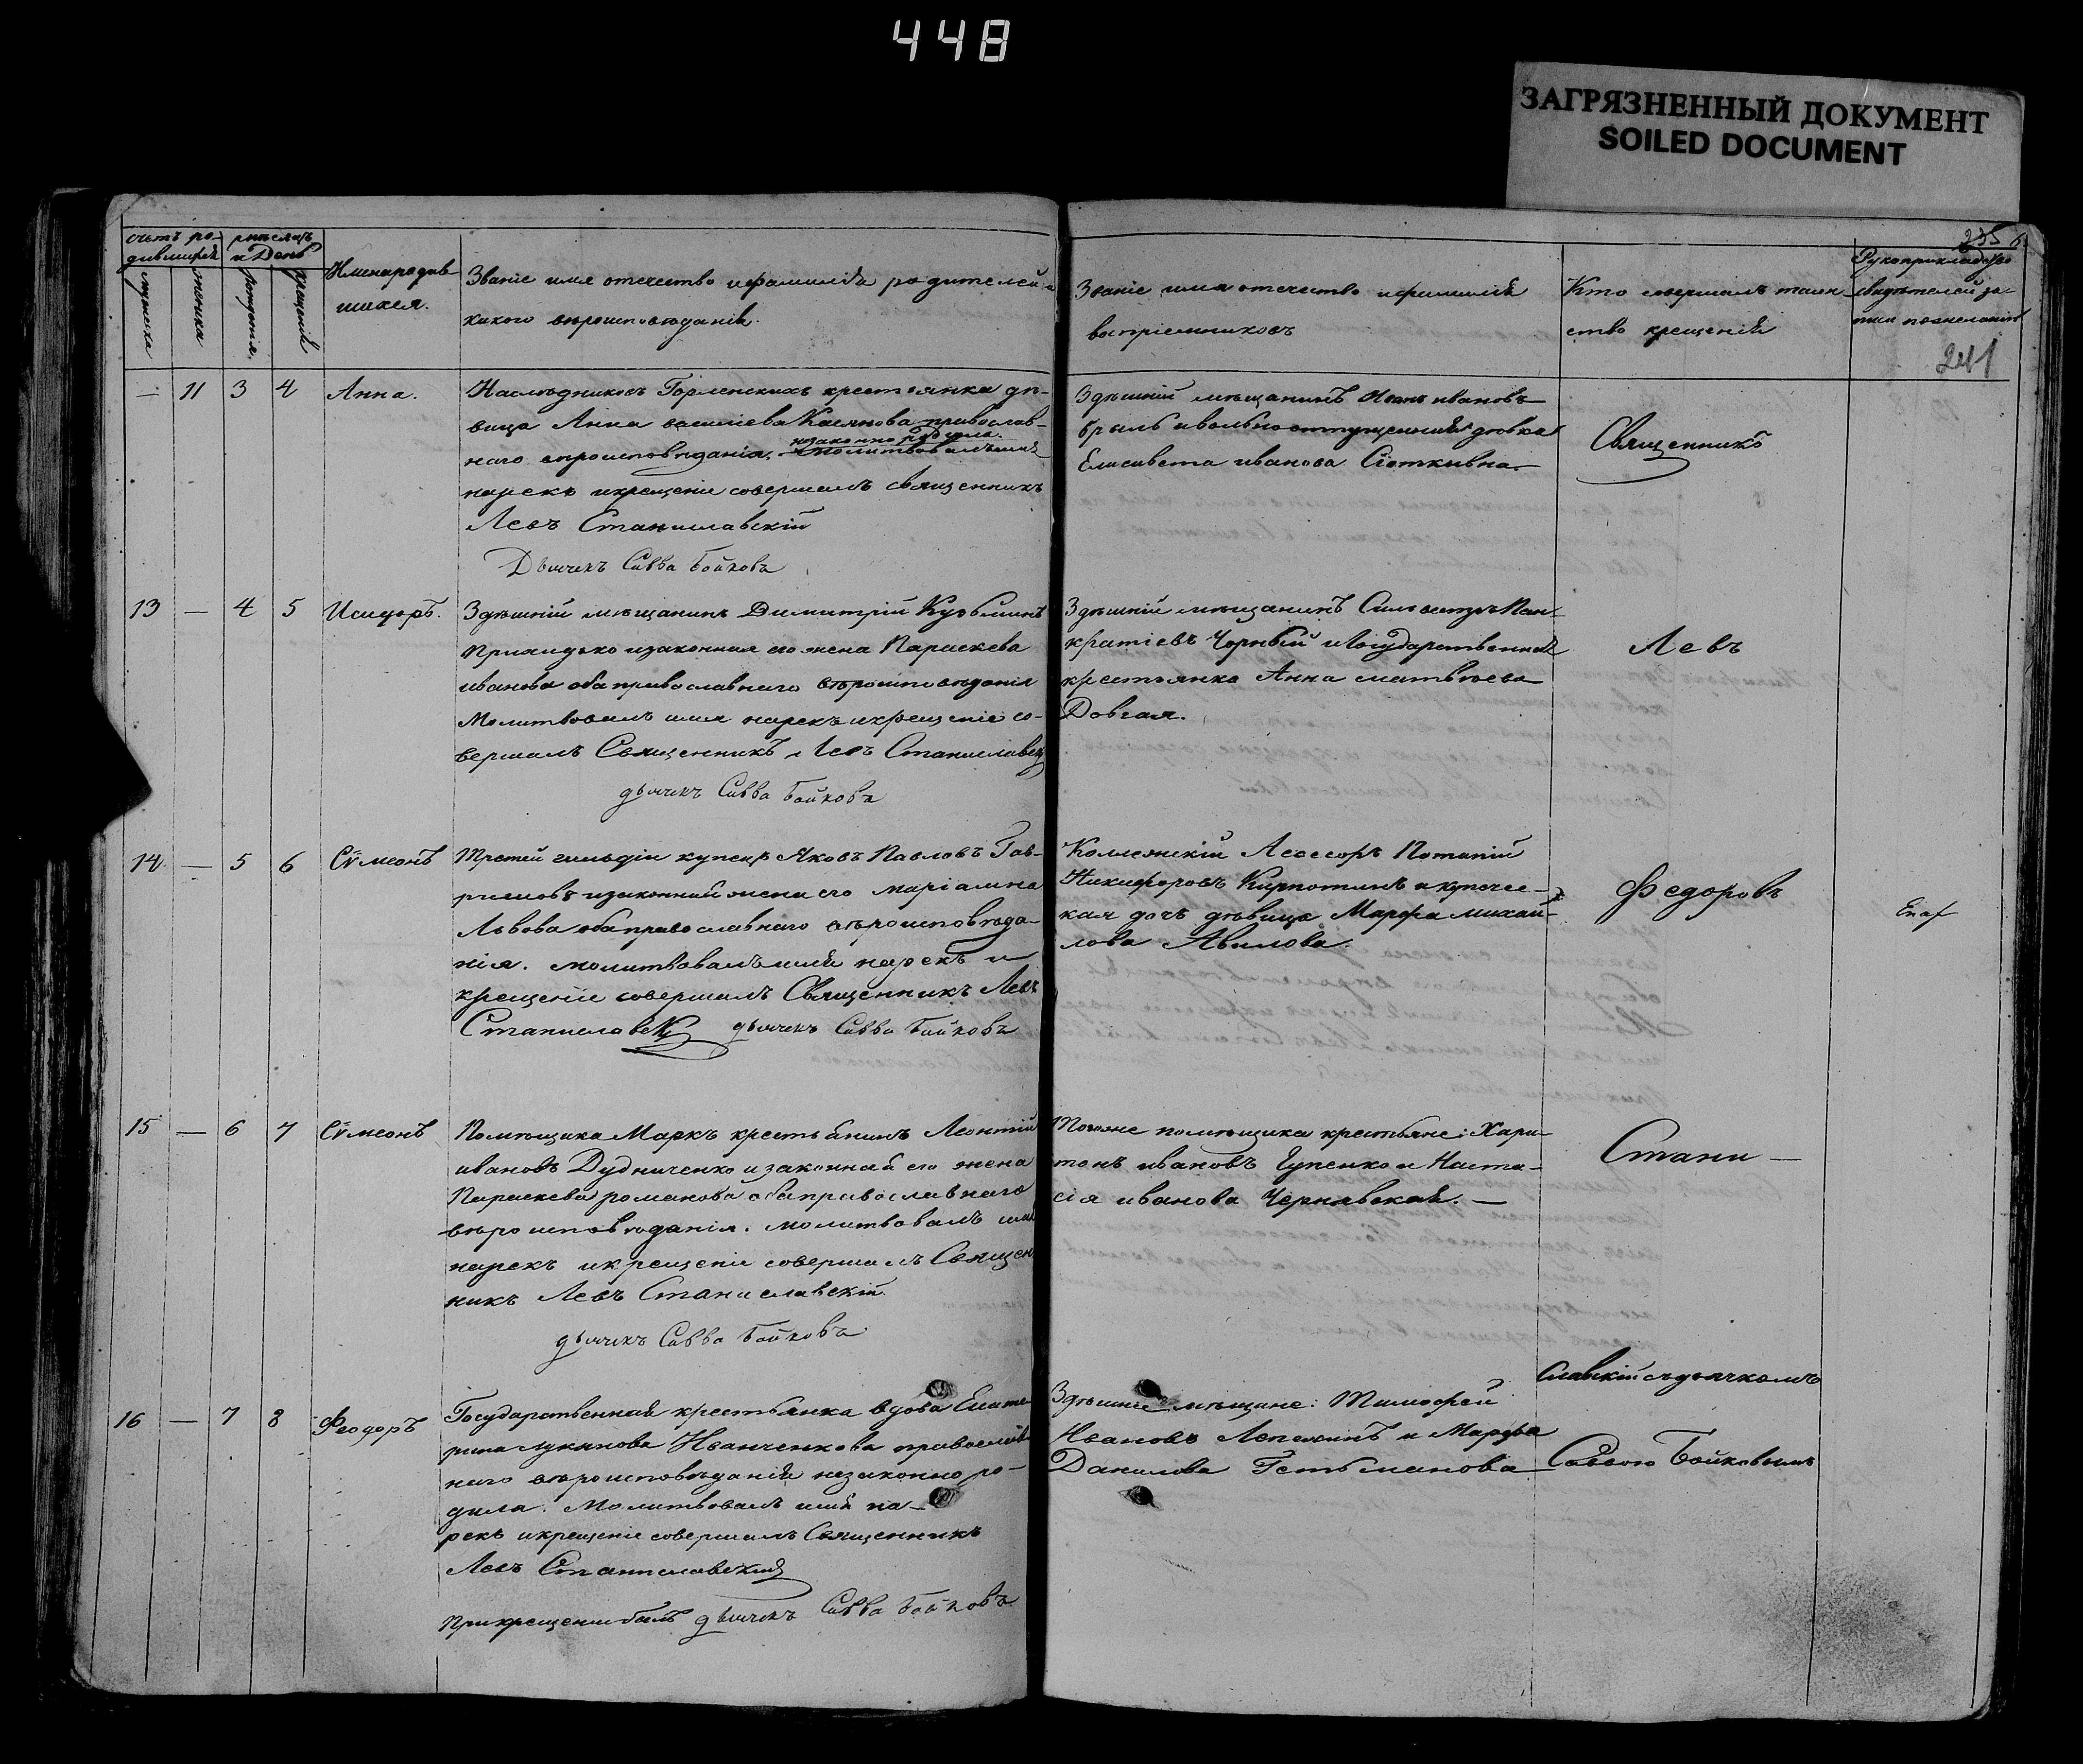 448
ЗАГРЯЗНЕННЫЙ ДОКУМЕНТ
SOILED DOCUMENT
235
241
счетъ ро-
дившихся
мужеска
женска
мѣсяцъ
и День
рожденія
крещенія
Имена родив
шихся.
Званіе имя отечество и фамилія родителей и
какого вѣроисповѣданія.
Званіе имя отечество и фамилія
воспріемниковъ
Кто совершалъ таин
ство крещенія
Рукоприкладство
свидѣтелей за-
писи по желанію
— 11 3 4 Анна.
Наслѣдниковъ Горленскихъ крестьянка дѣ-
вица Анна васильева Касьянова православ-
незаконно родила.
наго вѣроисповѣданія. молитвовалъ имя
нарекъ и крещеніе совершалъ священникъ
Левъ Станиславскій
Дьячекъ Савва Бойковъ
Здѣшній мѣщанинъ Иванъ ивановъ
брыль и вольноотпущенная дѣвка
Елисавета иванова
Священникъ
13 — 4 5 Исидоръ.
Здѣшній мѣщанинъ Димитрій Кузьминъ
Прихидько и законная его жена Параскева
иванова оба православнаго вѣроисповѣданія
Молитвовалъ имя нарекъ и крещеніе со-
вершалъ Священникъ Левъ Станиславск
дьячекъ Савва Бойковъ
Здѣшній мѣщанинъ Сильвестръ Пан-
кратіевъ Чорный и Государственная
крестьянка Анна матвѣева
Довгая.
Левъ
14 — 5 6 Сѵмеонъ
Третей гильдіи купецъ Яковъ Павловъ Гав-
риловъ и законная жена его маріамна
Львова оба православнаго вѣроисповѣда-
нія. молитвовалъ имя нарекъ и
крещеніе совершалъ Священникъ Левъ
Станиславск дьячекъ Савва Бойковъ
Коллежскій Асесоръ Потапій
Никифоровъ Кирпотинъ и купечес-
кая дочь дѣвица Марфа михай-
лова Авилова.
Федоровъ
15 — 6 7 Сѵмеонъ
Помѣщика Маркъ крестьянинъ Леонтій
ивановъ Дудниченко и законная его жена
Параскева романова оба православнаго
вѣроисповѣданія. молитвовалъ имя
нарекъ и крещеніе совершалъ Священ
никъ Левъ Станиславскій
дьячекъ Савва Бойковъ
Тогоже помѣщика крестьяне: Хари-
тонъ ивановъ Гупенко и Наста-
сія иванова Чернявская. —
Стани —
16 — 7 8 Феодоръ
Государственная крестьянка вдова Екате
рина лукьянова Иванченкова православ
наго вѣроисповѣданія незаконно ро-
дила. Молитвовалъ имя на-
рекъ и крещеніе совершалъ Священникъ
Левъ Станиславскій
При крещеніи былъ дьячекъ Савва Бойковъ
Здѣшніе мѣщане: Тимофей
Ивановъ Лепехинъ и Марфа
Данилова Гетьманова
славскій съ дьячкомъ
Саввою Бойковымъ